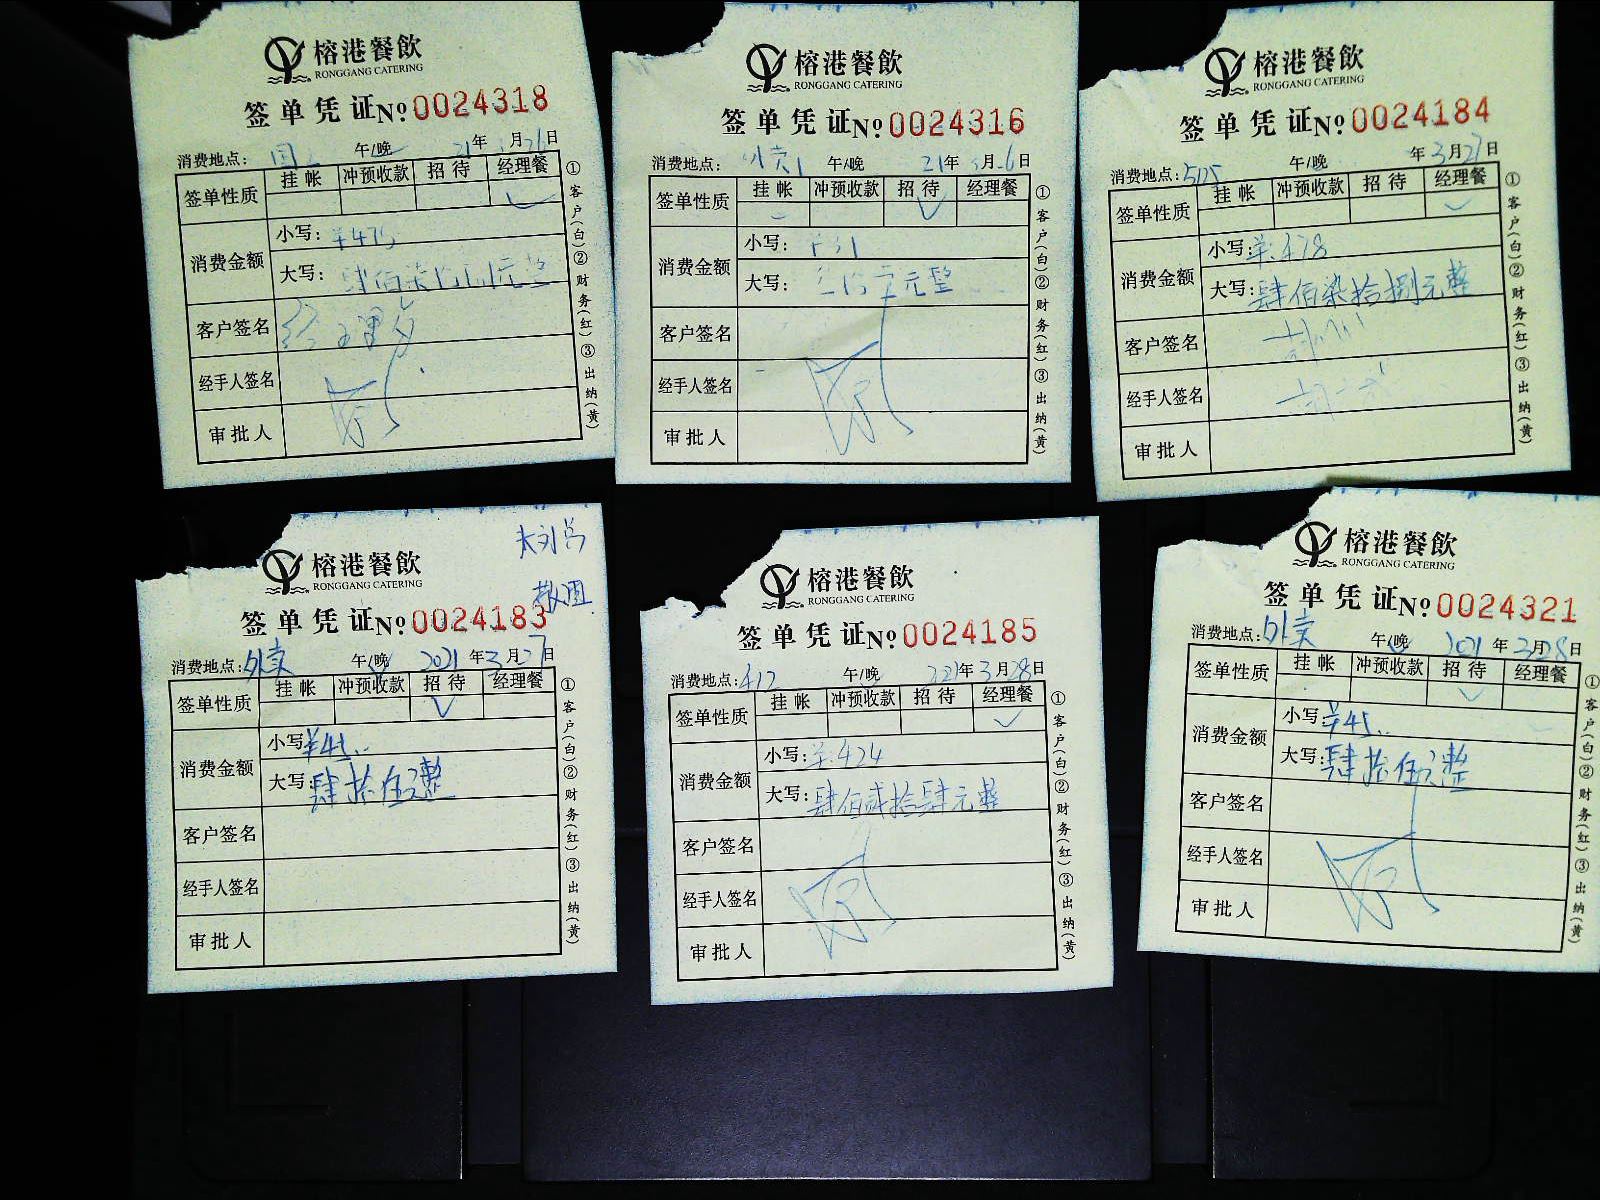 榕港餐飲
RONGGANG CATERING
签单凭证№0024318
消费地点: 午/晚 21年 月26日
签单性质 挂帐 冲预收款 招待 经理餐
消费金额 小写:
大写: 元整
客户签名 经理餐
经手人签名
审批人
①客户(白)②财务(红)③出纳(黄)
榕港餐飲
RONGGANG CATERING
签单凭证№0024316
消费地点:外卖 午/晚 21年3月26日
签单性质 挂帐 冲预收款 招待 经理餐
消费金额 小写:¥31
大写: 元整
客户签名
经手人签名
审批人
①客户(白)②财务(红)③出纳(黄)
榕港餐飲
RONGGANG CATERING
签单凭证№0024184
消费地点: 午/晚 年3月27日
签单性质 挂帐 冲预收款 招待 经理餐
消费金额 小写:¥:478
大写:肆佰柒拾捌元整
客户签名
经手人签名
审批人
①客户(白)②财务(红)③出纳(黄)
榕港餐飲
RONGGANG CATERING
签单凭证№0024183
消费地点:外卖 午/晚 2021年3月27日
签单性质 挂帐 冲预收款 招待 经理餐
消费金额 小写:¥45
大写:肆拾伍元整
客户签名
经手人签名
审批人
①客户(白)②财务(红)③出纳(黄)
榕港餐飲
RONGGANG CATERING
签单凭证№0024185
消费地点:417 午/晚 221年3月28日
签单性质 挂帐 冲预收款 招待 经理餐
消费金额 小写:¥:424
大写:肆佰贰拾肆元整
客户签名
经手人签名
审批人
①客户(白)②财务(红)③出纳(黄)
榕港餐飲
RONGGANG CATERING
签单凭证№0024321
消费地点:外卖 午/晚 2021年3月28日
签单性质 挂帐 冲预收款 招待 经理餐
消费金额 小写:¥45
大写:肆拾伍元整
客户签名
经手人签名
审批人
①客户(白)②财务(红)③出纳(黄)